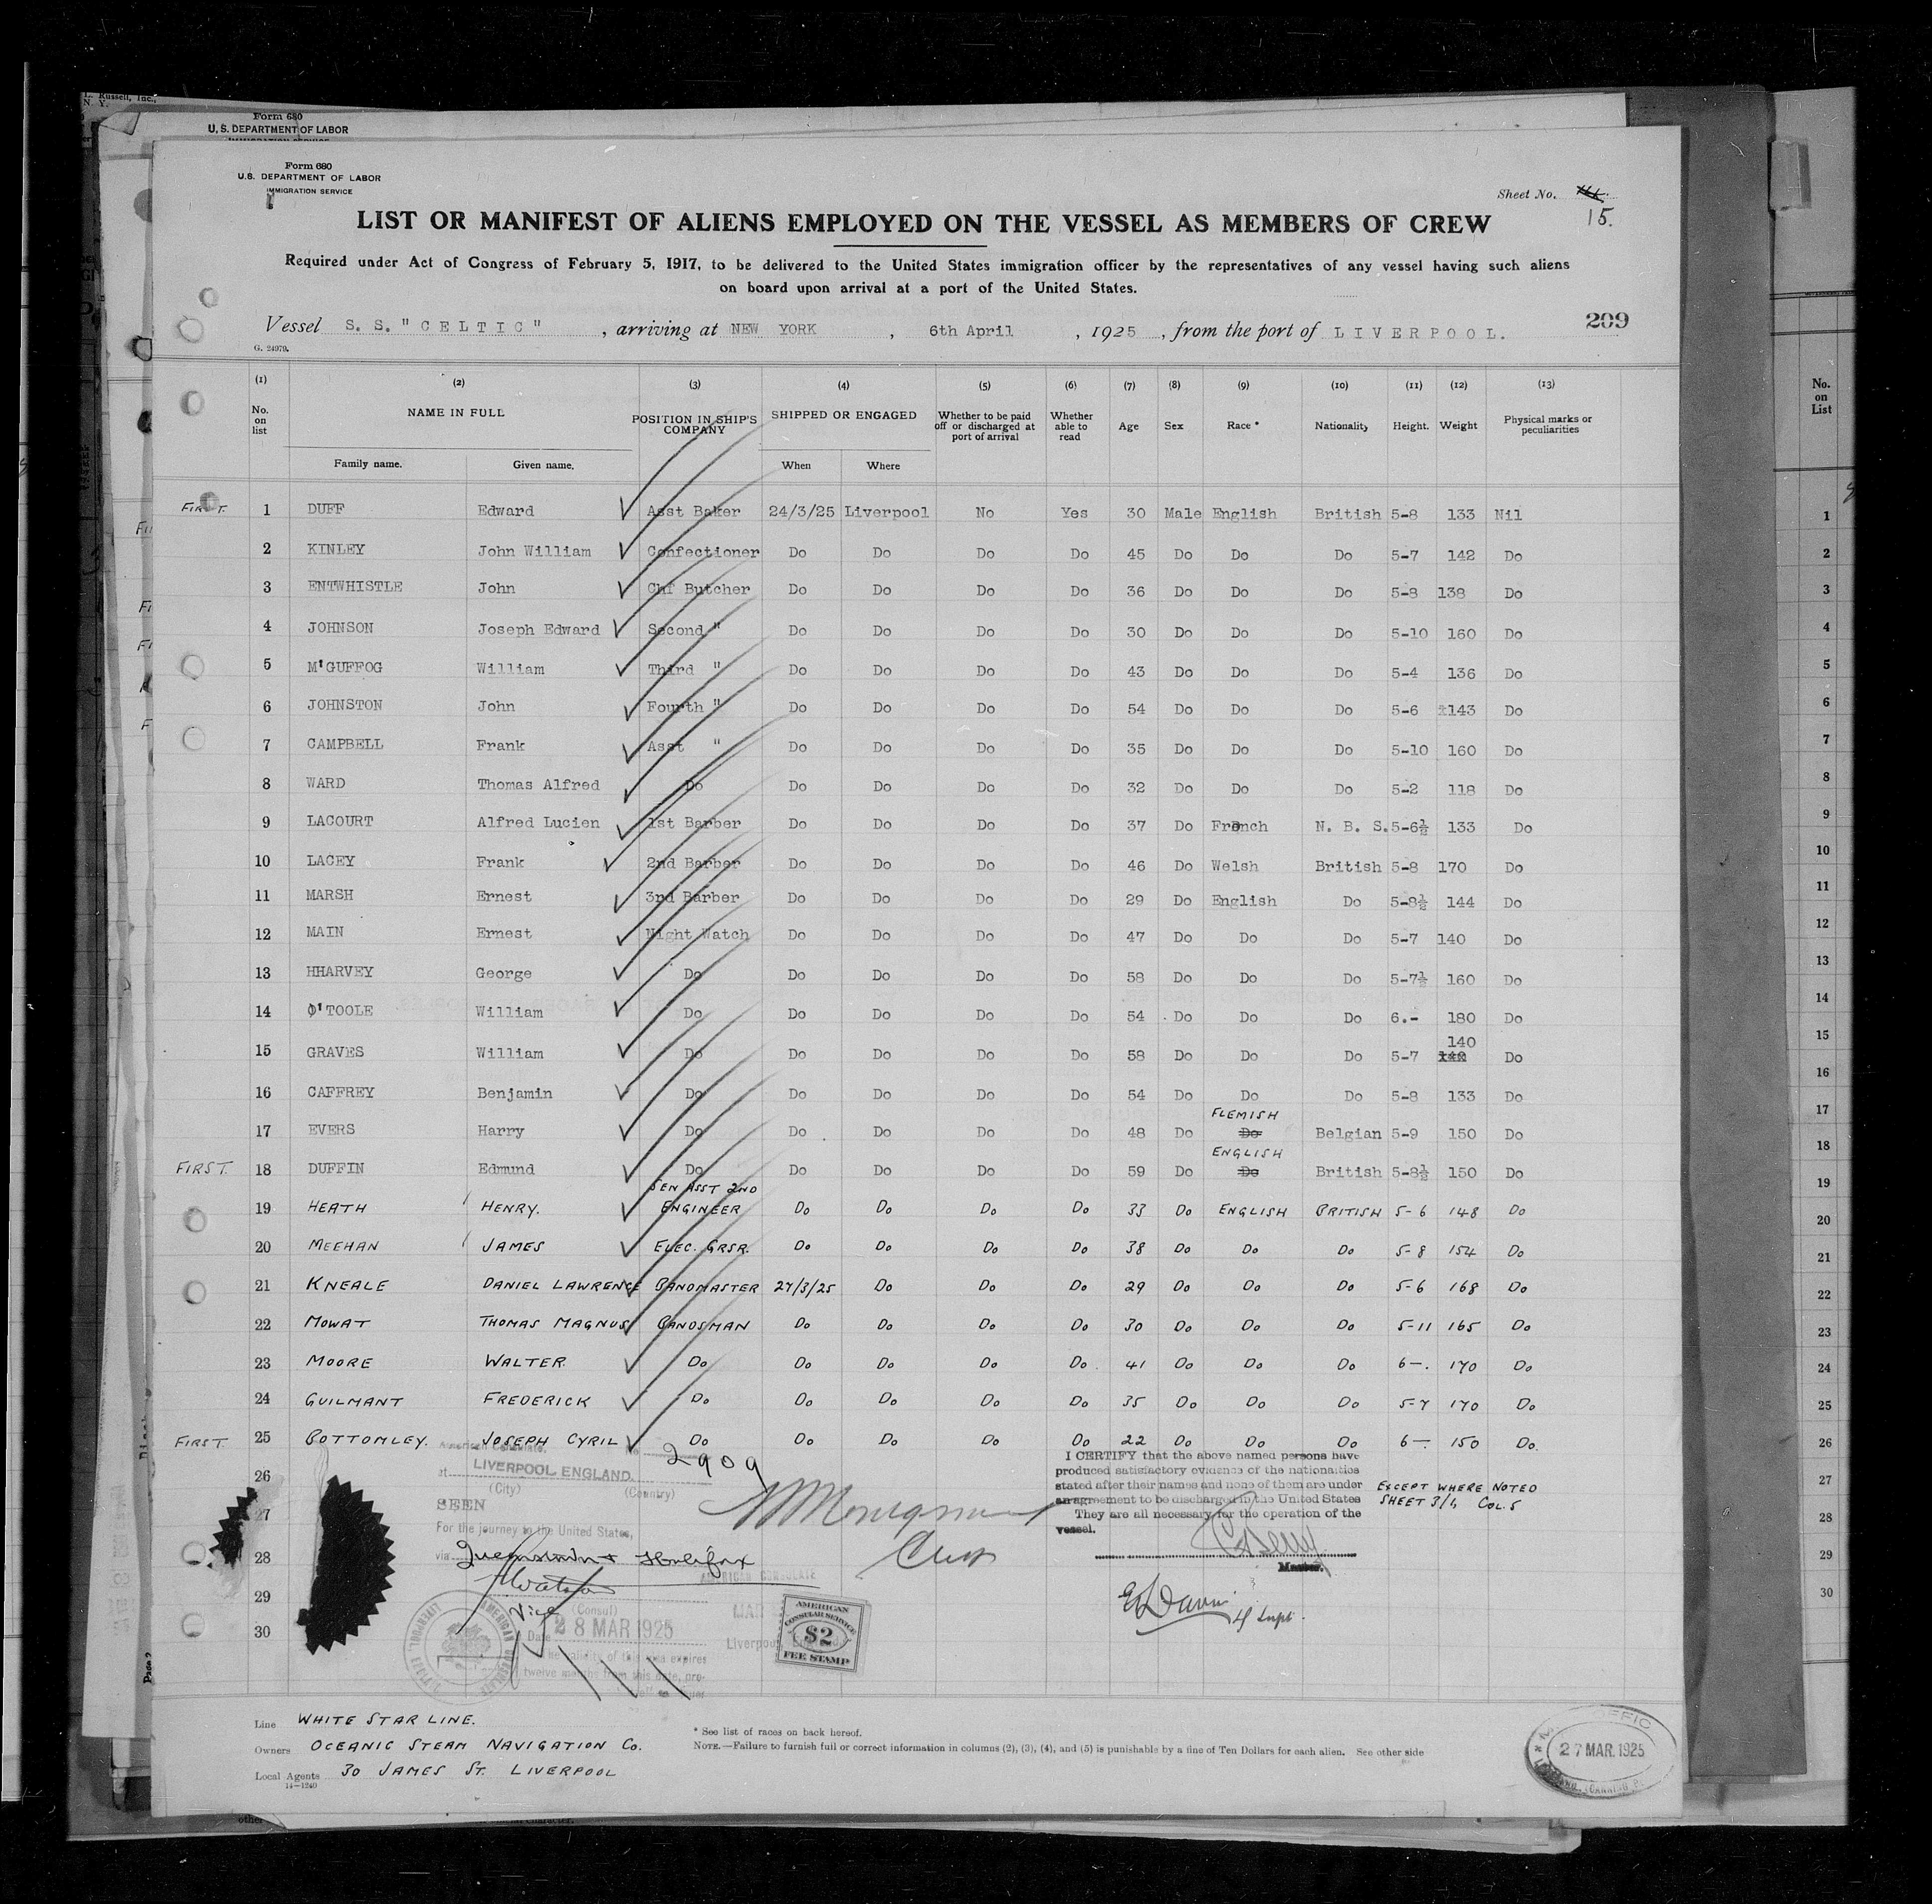 L. Russell, Inc.,
N. Y.
Form 680
U.S. DEPARTMENT OF LABOR
Form 680
U.S. DEPARTMENT OF LABOR
IMMIGRATION SERVICE
Sheet No. 15.
LIST OR MANIFEST OF ALIENS EMPLOYED ON THE VESSEL AS MEMBERS OF CREW
Required under Act of Congress of February 5, 1917, to be delivered to the United States immigration officer by the representatives of any vessel having such aliens
on board upon arrival at a port of the United States.
Vessel S. S. "CELTIC", arriving at NEW YORK, 6th April, 1925, from the port of LIVERPOOL.
209
G. 24979.
(1) (2) (3) (4) (5) (6) (7) (8) (9) (10) (11) (12) (13)
No. on list NAME IN FULL POSITION IN SHIP'S COMPANY SHIPPED OR ENGAGED Whether to be paid off or discharged at port of arrival Whether able to read Age Sex Race * Nationality Height. Weight Physical marks or peculiarities
Family name. Given name. When Where
FIRST. 1 DUFF Edward Asst Baker 24/3/25 Liverpool No Yes 30 Male English British 5-8 133 Nil
2 KINLEY John William Confectioner Do Do Do Do 45 Do Do Do 5-7 142 Do
3 ENTWHISTLE John Chf Butcher Do Do Do Do 36 Do Do Do 5-8 138 Do
4 JOHNSON Joseph Edward Second " Do Do Do Do 30 Do Do Do 5-10 160 Do
5 M'GUFFOG William Third " Do Do Do Do 43 Do Do Do 5-4 136 Do
6 JOHNSTON John Fourth " Do Do Do Do 54 Do Do Do 5-6 143 Do
7 CAMPBELL Frank Asst " Do Do Do Do 35 Do Do Do 5-10 160 Do
8 WARD Thomas Alfred Do Do Do Do Do 32 Do Do Do 5-2 118 Do
9 LACOURT Alfred Lucien 1st Barber Do Do Do Do 37 Do French N. B. S. 5-6½ 133 Do
10 LACEY Frank 2nd Barber Do Do Do Do 46 Do Welsh British 5-8 170 Do
11 MARSH Ernest 3rd Barber Do Do Do Do 29 Do English Do 5-8½ 144 Do
12 MAIN Ernest Night Watch Do Do Do Do 47 Do Do Do 5-7 140 Do
13 HHARVEY George Do Do Do Do Do 58 Do Do Do 5-7½ 160 Do
14 O'TOOLE William Do Do Do Do Do 54 Do Do Do 6.- 180 Do
140
15 GRAVES William Do Do Do Do Do 58 Do Do Do 5-7 142 Do
16 CAFFREY Benjamin Do Do Do Do Do 54 Do Do Do 5-8 133 Do
FLEMISH
17 EVERS Harry Do Do Do Do Do 48 Do Do Belgian 5-9 150 Do
ENGLISH
FIRST. 18 DUFFIN Edmund Do Do Do Do Do 59 Do Do British 5-8½ 150 Do
SEN ASST 2ND
19 HEATH HENRY. ENGINEER Do Do Do Do 33 Do ENGLISH BRITISH 5-6 148 Do
20 MEEHAN JAMES ELEC. GRSR. Do Do Do Do 38 Do Do Do 5-8 154 Do
21 KNEALE DANIEL LAWRENCE BANDMASTER 27/3/25 Do Do Do 29 Do Do Do 5-6 168 Do
22 MOWAT THOMAS MAGNUS BANDSMAN Do Do Do Do 30 Do Do Do 5-11 165 Do
23 MOORE WALTER. Do Do Do Do Do 41 Do Do Do 6-. 170 Do
24 GUILMANT FREDERICK Do Do Do Do Do 35 Do Do Do 5-7 170 Do
FIRST. 25 BOTTOMLEY. JOSEPH CYRIL Do Do Do Do Do 22 Do Do Do 6-. 150 Do.
26
27
28
29
30
American Consulate, No 2909
at LIVERPOOL, ENGLAND.
(City) (Country)
SEEN
For the journey to the United States,
via Queenstown + Halifax
Watson
Vice (Consul)
Date 28 MAR 1925
The validity of this visa expires
twelve months from this date, pro-
AMERICAN CONSULATE
MAR
Liverpool, England
AMERICAN CONSULATE LIVERPOOL
AMERICAN
CONSULAR SERVICE
$2
FEE STAMP
I CERTIFY that the above named persons have
produced satisfactory evidence of the nationalities
stated after their names and none of them are under
an agreement to be discharged in the United States
They are all necessary for the operation of the
vessel.
EXCEPT WHERE NOTED
SHEET 3/4 COL. 5
Master.
Line WHITE STAR LINE.
Owners OCEANIC STEAM NAVIGATION Co.
Local Agents 30 JAMES ST. LIVERPOOL
14-1240
* See list of races on back hereof.
NOTE.—Failure to furnish full or correct information in columns (2), (3), (4), and (5) is punishable by a fine of Ten Dollars for each alien. See other side
27 MAR. 1925
No.
on
List
1
2
3
4
5
6
7
8
9
10
11
12
13
14
15
16
17
18
19
20
21
22
23
24
25
26
27
28
29
30